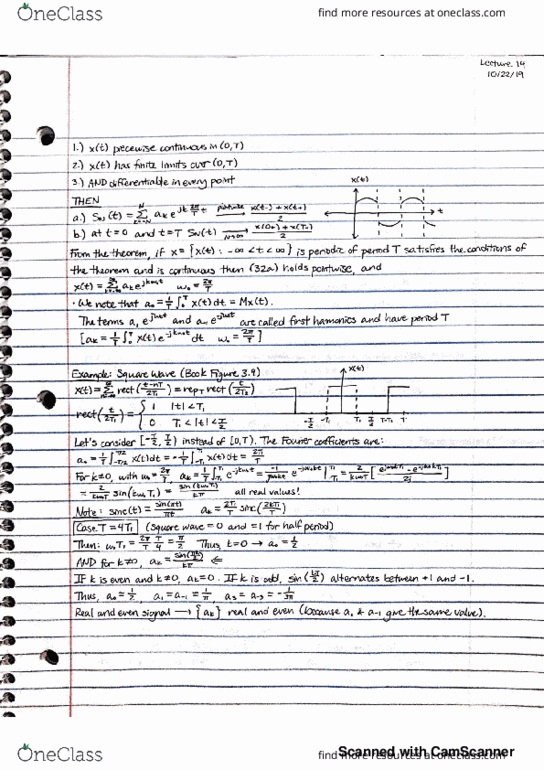 OneClass
find more resources at oneclass.com
Lecture 14
10/22/19
1.) x(t) piecewise continuous in (0,T)
2.) x(t) has finite limits over (0,T)
3.) AND differentiable in every point
x(t)
t
THEN
a.) S_N(t) = Σ_{k=-N}^{N} a_k e^{jk 2π/T t} pointwise → (x(t-) + x(t+))/2
b.) at t=0 and t=T S_N(t) →_{N→∞} (x(0+) + x(T-))/2
From the theorem, if x = {x(t) : -∞ < t < ∞} is periodic of period T satisfies the conditions of
the theorem and is continuous then (32a) holds pointwise, and
x(t) = Σ a_k e^{jkω₀t} ω₀ = 2π/T
· We note that a₀ = 1/T ∫₀ᵀ x(t) dt = Mx(t).
The terms a₁ e^{jω₀t} and a₋₁ e^{-jω₀t} are called first harmonics and have period T
[a_k = 1/T ∫₀ᵀ x(t) e^{-jkω₀t} dt ω₀ = 2π/T]
Example: Square Wave (Book Figure 3.9)
x(t)
x(t) = Σ rect((t-nT)/2T₁) = rep_T rect(t/2T₁)
-T/2 -T₁ T₁ T/2 T-T₁ T
rect(t/2T₁) = { 1 |t| < T₁
0 T₁ < |t| < T/2
Let's consider [-T/2, T/2) instead of [0,T). The Fourier coefficients are:
a₀ = 1/T ∫_{-T/2}^{T/2} x(t) dt = 1/T ∫_{-T₁}^{T₁} x(t) dt = 2T₁/T
For k≠0, with ω₀ = 2π/T a_k = 1/T ∫_{-T₁}^{T₁} e^{-jkω₀t} dt = -1/(jkω₀T) e^{-jkω₀t} |_{-T₁}^{T₁} = 2/(kω₀T) [(e^{jkω₀T₁} - e^{-jkω₀T₁})/2j]
= 2/(kω₀T) sin(kω₀T₁) = sin(kω₀T₁)/kπ all real values!
Note: sinc(t) = sin(πt)/πt a_k = 2T₁/T sinc(2kT₁/T)
Case T=4T₁ (square wave = 0 and = 1 for half period)
Then: ω₀T₁ = 2π/T T/4 = π/2 Thus, k=0 → a₀ = 1/2
AND for k≠0, a_k = sin(kπ/2)/kπ ⇐
IF k is even and k≠0, a_k=0. IF k is odd, sin(kπ/2) alternates between +1 and -1.
Thus, a₀ = 1/2 a₁ = a₋₁ = 1/π, a₃ = a₋₃ = -1/3π
Real and even signal → {a_k} real and even (because a₁ & a₋₁ give the same value).
OneClass
find more resources at oneclass.com
Scanned with CamScanner